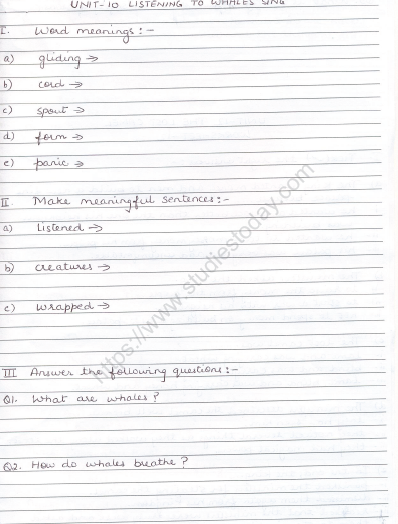 UNIT-10 LISTENING TO WHALES SING
I. Word meanings :-
a) gliding →
b) cord →
c) spout →
d) form →
e) panic →
II. Make meaningful sentences:-
a) Listened →
b) creatures →
c) wrapped →
https://www.studiestoday.com
III Answer the following questions:-
Q1. What are whales?
Q2. How do whales breathe?